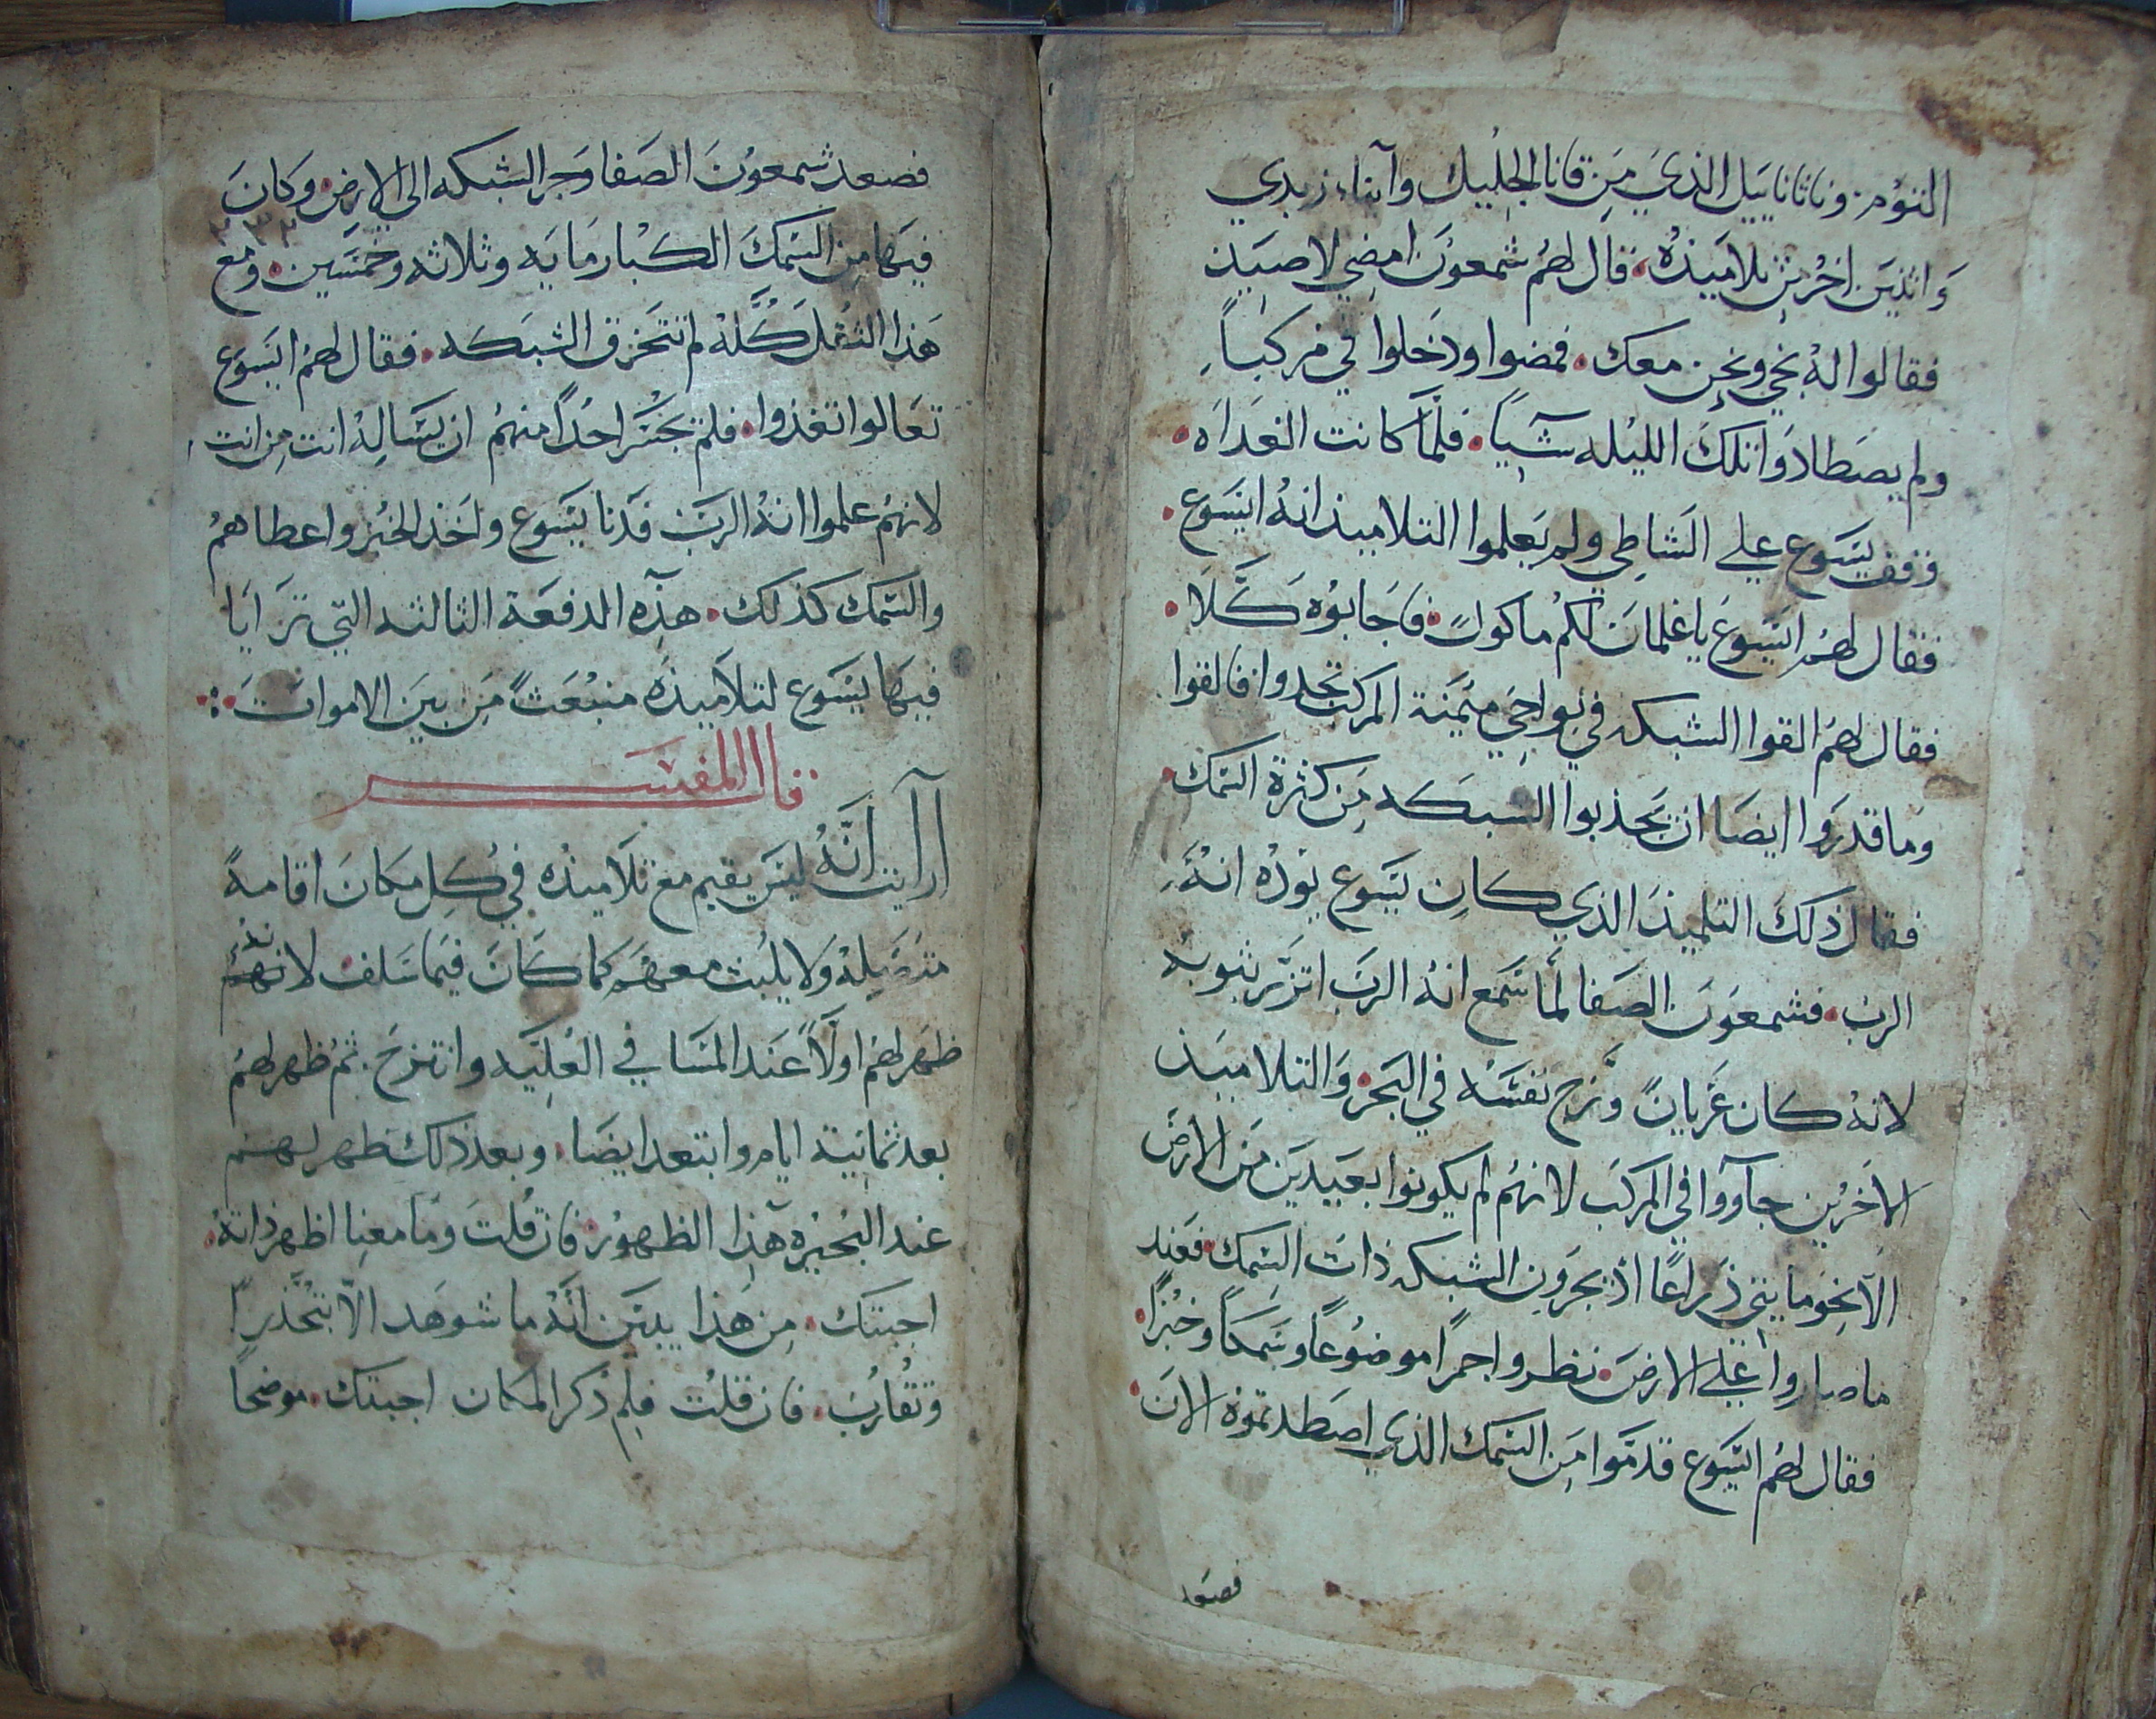 التؤم وناثانايبل الذي من قانا الجليل وابنا زبدي
واثنين اخرين تلاميذه قال لهم شمعون امضي لاصيد
فقالوا له نجي ونحن معك فمضوا ودخلوا في مركباً
ولم يصطادوا تلك الليله شياً فلما كانت الغداه
فوقف يسوع علي الشاطي ولم يعلموا التلاميذ انه ايسوع
فقال لهم ايسوع يا غلمان لكم ماكولاً فاجابوه كلا
فقال لهم القوا الشبكه في نواحي ميمنة المركب تجدوا فالقوا
وما قدروا ايضا ان يجذبوا الشبكه من كثرة السمك
فقال ذلك التلميذ الذي كان يسوع يوده انه
الرب فشمعون الصفا لما سمع انه الرب اتزر بثوبه
لانه كان عريان وزج نفسه في البحر والتلاميذ
الاخرين جاووا في المركب لانهم لم يكونوا بعيدين من الارض
الا نحو مايتي ذراعاً اذ يجرون الشبكه ذات السمك فعند
ما صاروا علي الارض نظروا جمراً موضوعاً وسمكاً وخبزاً
فقال لهم ايسوع قدموا من السمك الذي اصطدتموه الان
فصعد
فصعد شمعون الصفا وجر الشبكه الي الارض وكان
فيها من السمك الكبار مايه وثلاثه وخمسين ومع
هذا الثقل كله لم تتخرق الشبكه فقال لهم ايسوع
تعالوا تغذوا فلم يجتسر احداً منهم ان يساله انت من انت
لانهم علموا انه الرب فدنا يسوع واخذ الخبز واعطاهم
والسمك كذلك هذه الدفعة الثالثه التي ترايا
فيها يسوع لتلاميذه منبعث من بين الاموات
قال المفسر
ارايت انه ليس يقيم مع تلاميذه في كل مكان اقامة
متصله ولا يلبث معهم كما كان فيما سلف لانه
ظهر لهم اولاً عند المسا في العليه وانتزح ثم ظهر لهم
بعد ثمانية ايام وابتعد ايضا وبعد ذلك ظهر لهم
عند البحيره هذا الظهور فان قلت وما معنا اظهر ذاته
اجبتك من هذا يبين انه ما شوهد الا بتحذيراً
وتقارب فان قلت فلم ذكر المكان اجبتك موضحاً